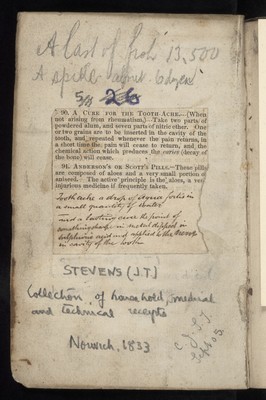 A last of fish 13,500
A
5/3 26
90. A CURE FOR THE TOOTH-ACHE.—[When
not arising from rheumatism].—Take two parts of
powdered alum, and seven parts of nitric ether. One
or two grains are to be inserted in the cavity of the
tooth, and repeated whenever the pain returns, in
a short time the pain will cease to return, and the
chemical action which produces the caries (decay of
the bone) will cease.
91. ANDERSON'S OR SCOTT'S PILLS.—These pills
are composed of aloes and a very small portion of
aniseed. The active principle is the aloes, a very
injurious medicine if frequently taken.
Tooth ache a drop of aqua fortis in
a small quantity of
and a
something in metal dipped in
sulphuric acid and applied to the
in cavity of the tooth
STEVENS (J.T.)
Collection of household, medical
and technical receipts
Norwich, 1833